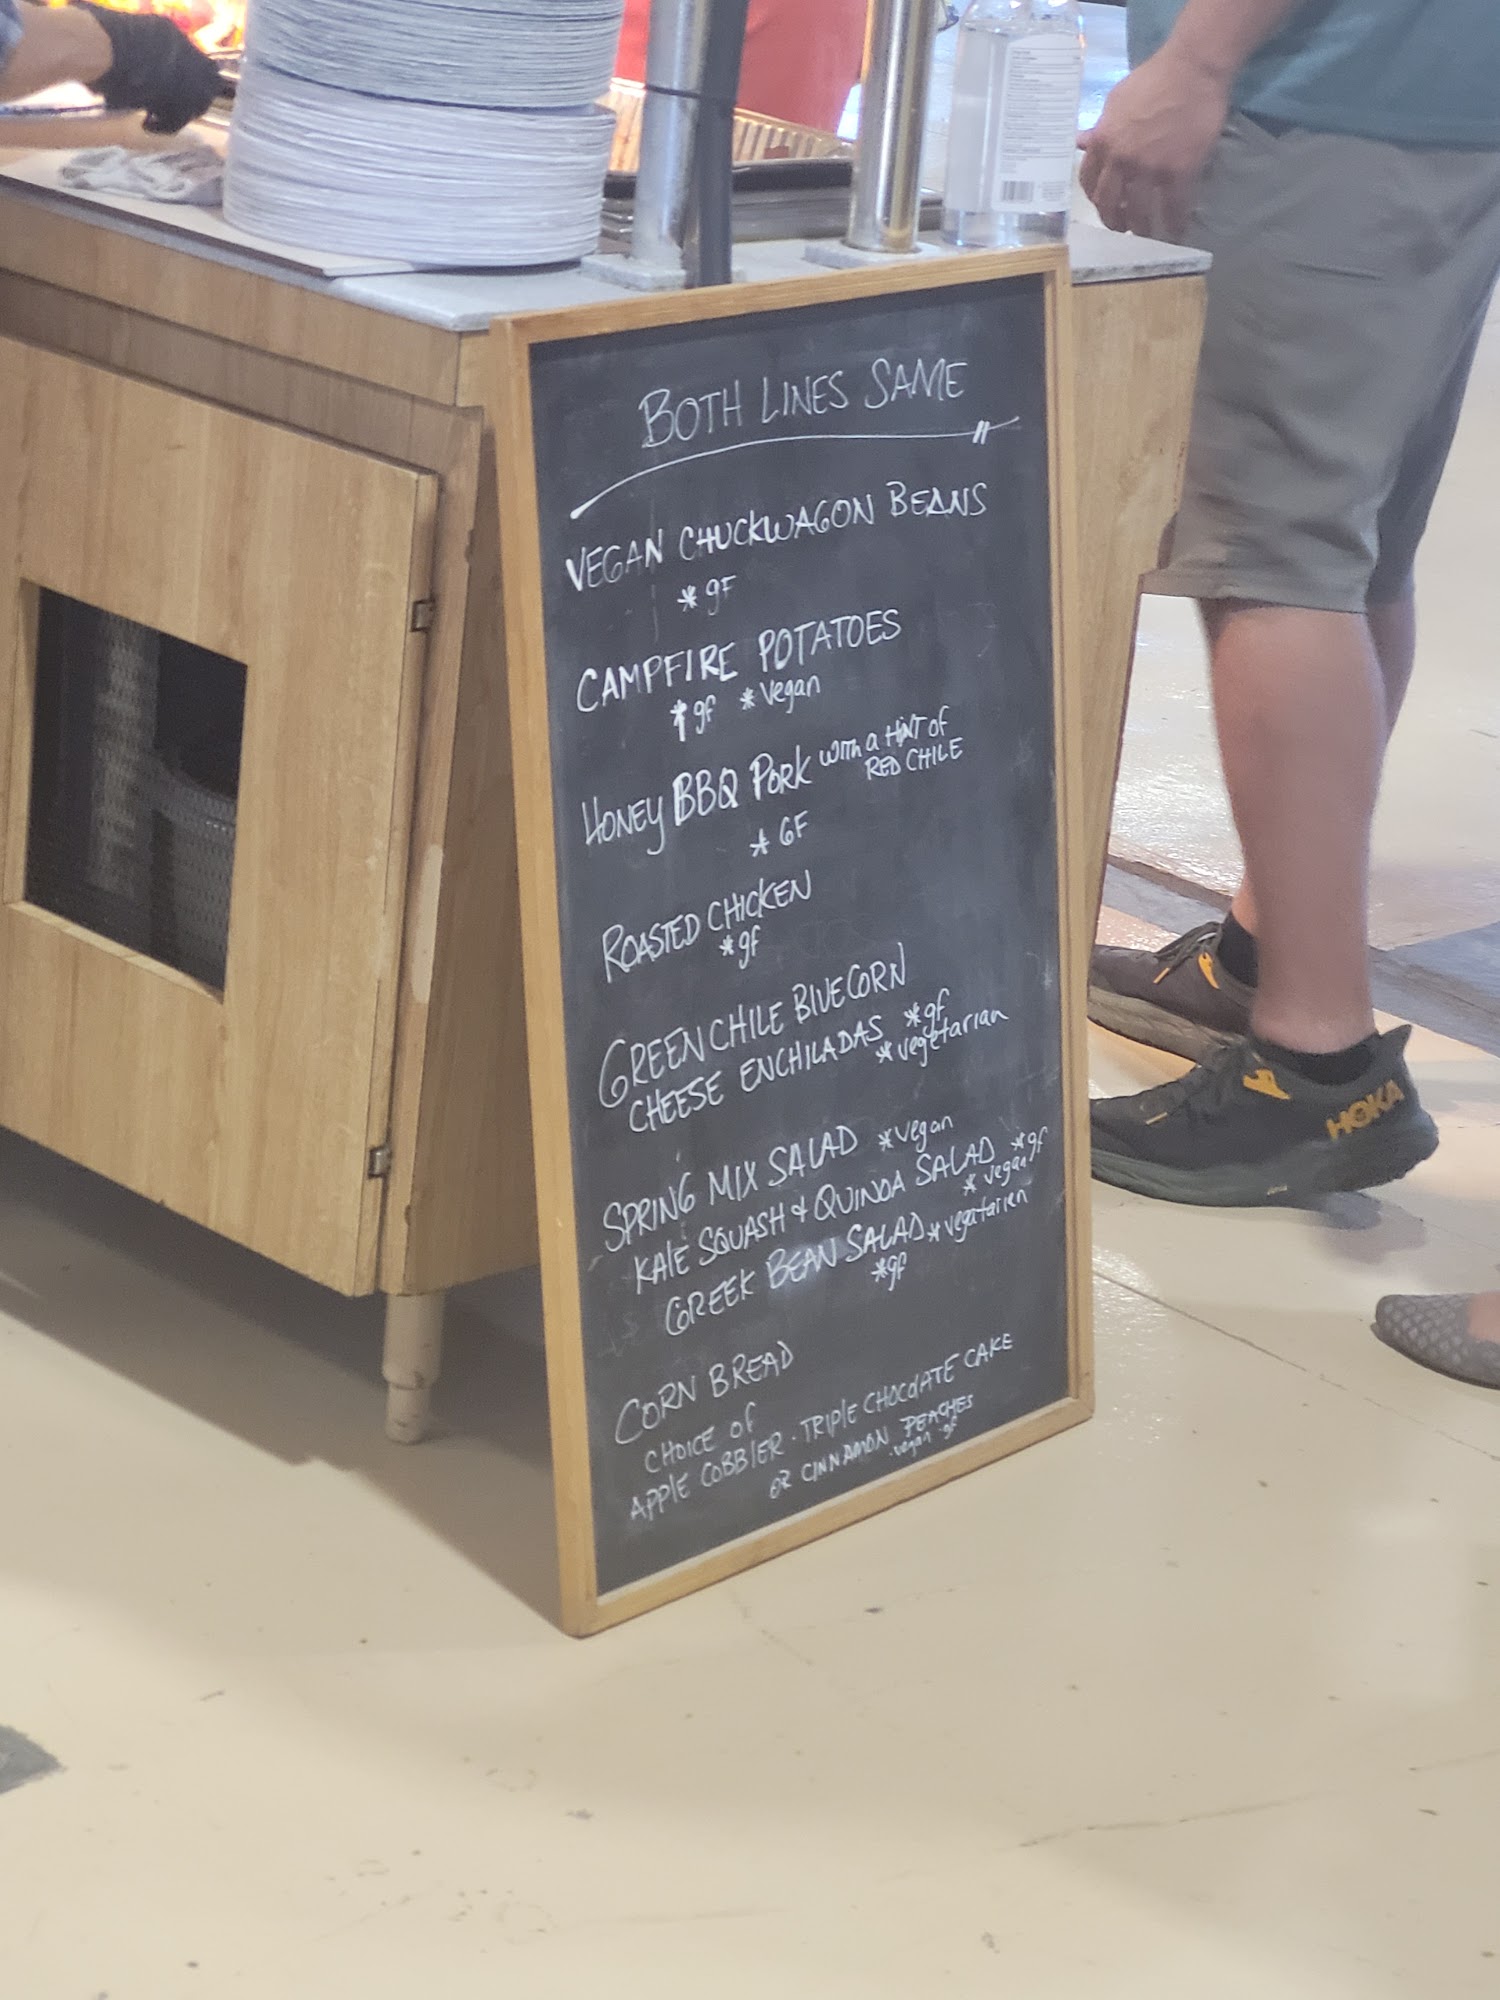 BOTH LINES SAME
VEGAN CHUCKWAGON BEANS
* gF
CAMPFIRE POTATOES
* gf * Vegan
HONEY BBQ PORK with a HINT of
RED CHILE
* GF
ROASTED CHICKEN
* gf
GREEN CHILE BLUE CORN
CHEESE ENCHILADAS * gf
* vegetarian
SPRING MIX SALAD * vegan
KALE SQUASH & QUINOA SALAD * gf
* vegan
GREEK BEAN SALAD * vegatarien
* gf
CORN BREAD
CHOICE of
APPLE COBBLER · TRIPLE CHOCOLATE CAKE
OR CINNAMON PEACHES
· vegan · gf
HOKA